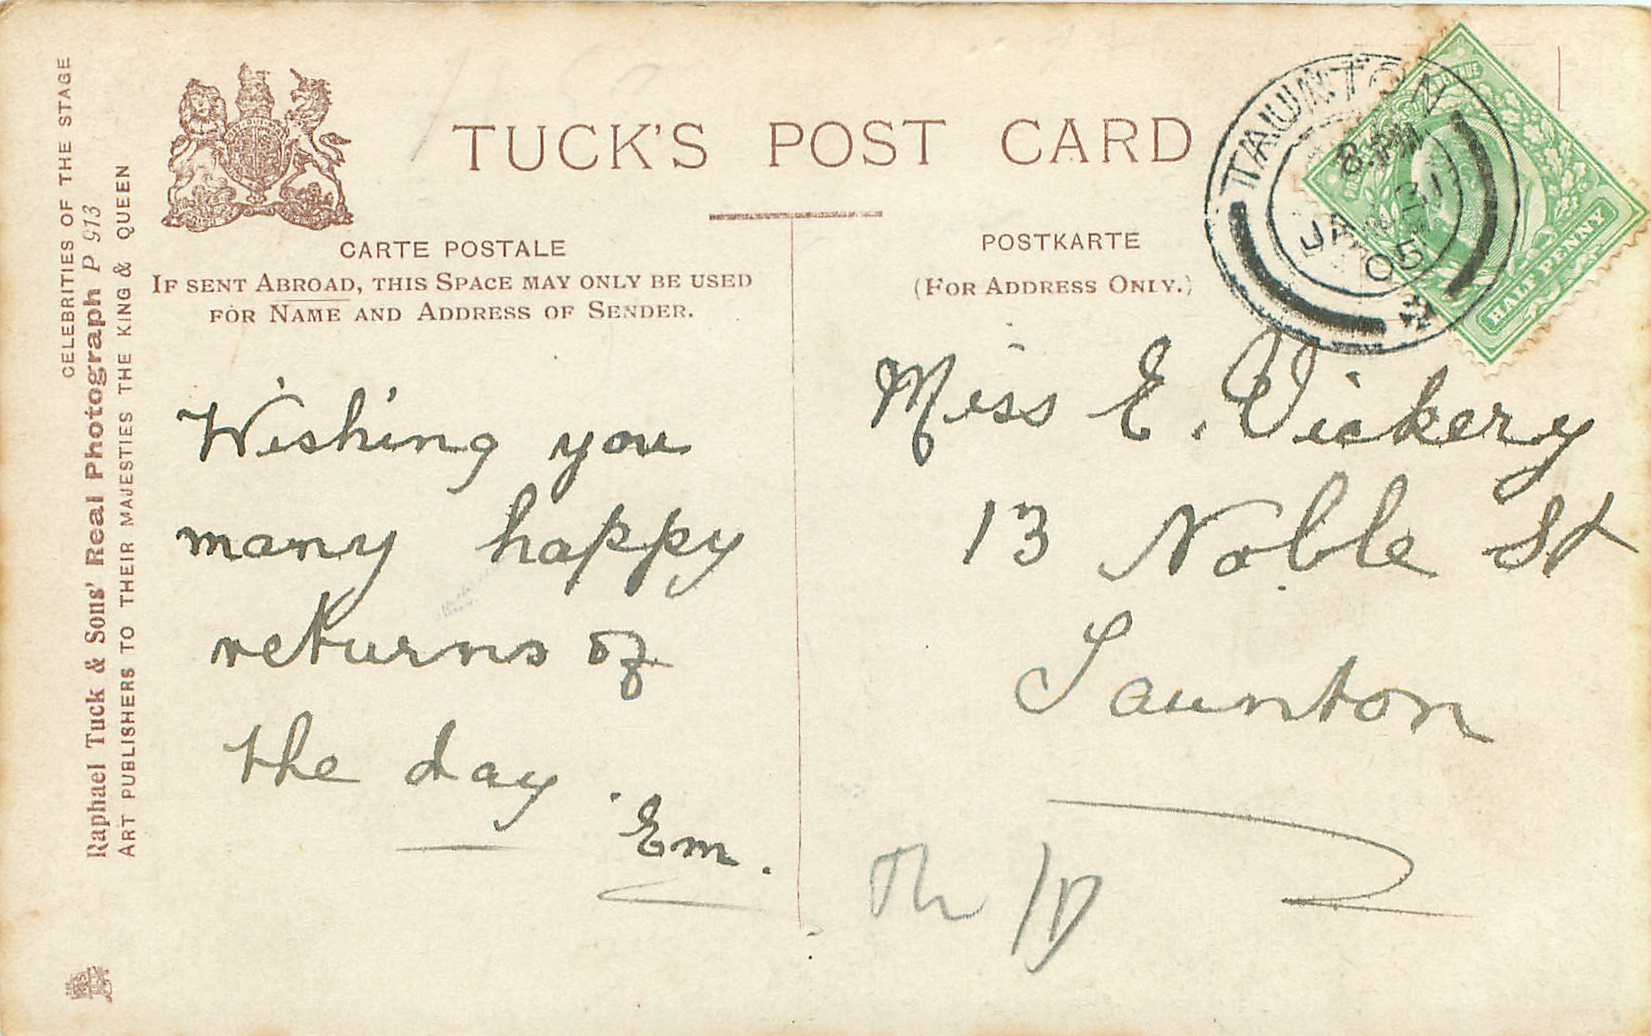 CELEBRITIES OF THE STAGE
Raphael Tuck & Sons' Real Photograph P 913
ART PUBLISHERS TO THEIR MAJESTIES THE KING & QUEEN
TUCK'S POST CARD
CARTE POSTALE
IF SENT ABROAD, THIS SPACE MAY ONLY BE USED
FOR NAME AND ADDRESS OF SENDER.
POSTKARTE
(FOR ADDRESS ONLY.)
TAUNTON
8. PM
JAN 31
05
HALF PENNY
Wishing you
many happy
returns of
the day.
Em.
Miss E. Vickery
13 Noble St
Taunton